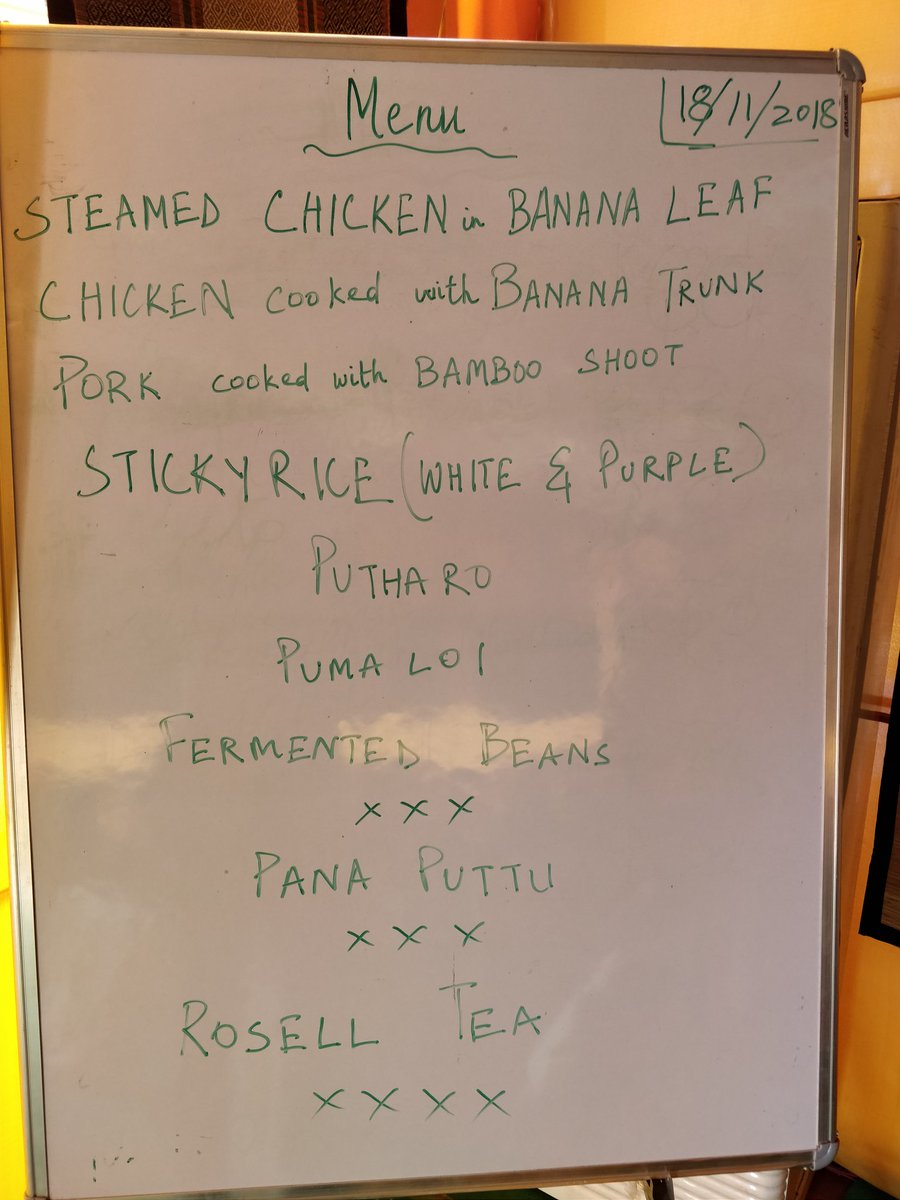 Menu
18/11/2018
STEAMED CHICKEN in BANANA LEAF
CHICKEN cooked with BANANA TRUNK
PORK cooked with BAMBOO SHOOT
STICKY RICE (WHITE & PURPLE)
PUTHARO
PUMALOI
FERMENTED BEANS
x x x
PANA PUTTU
x x x
ROSELL TEA
x x x x